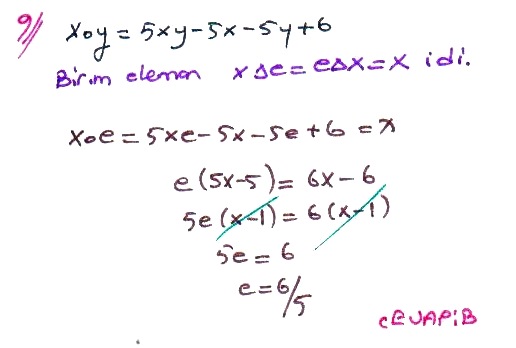 9) x∘y = 5xy-5x-5y+6
Birim eleman x△e=e△x=x idi.
x∘e = 5xe-5x-5e+6 = x
e(5x-5) = 6x-6
5e(x-1) = 6(x-1)
5e = 6
e = 6/5
CEVAP:B